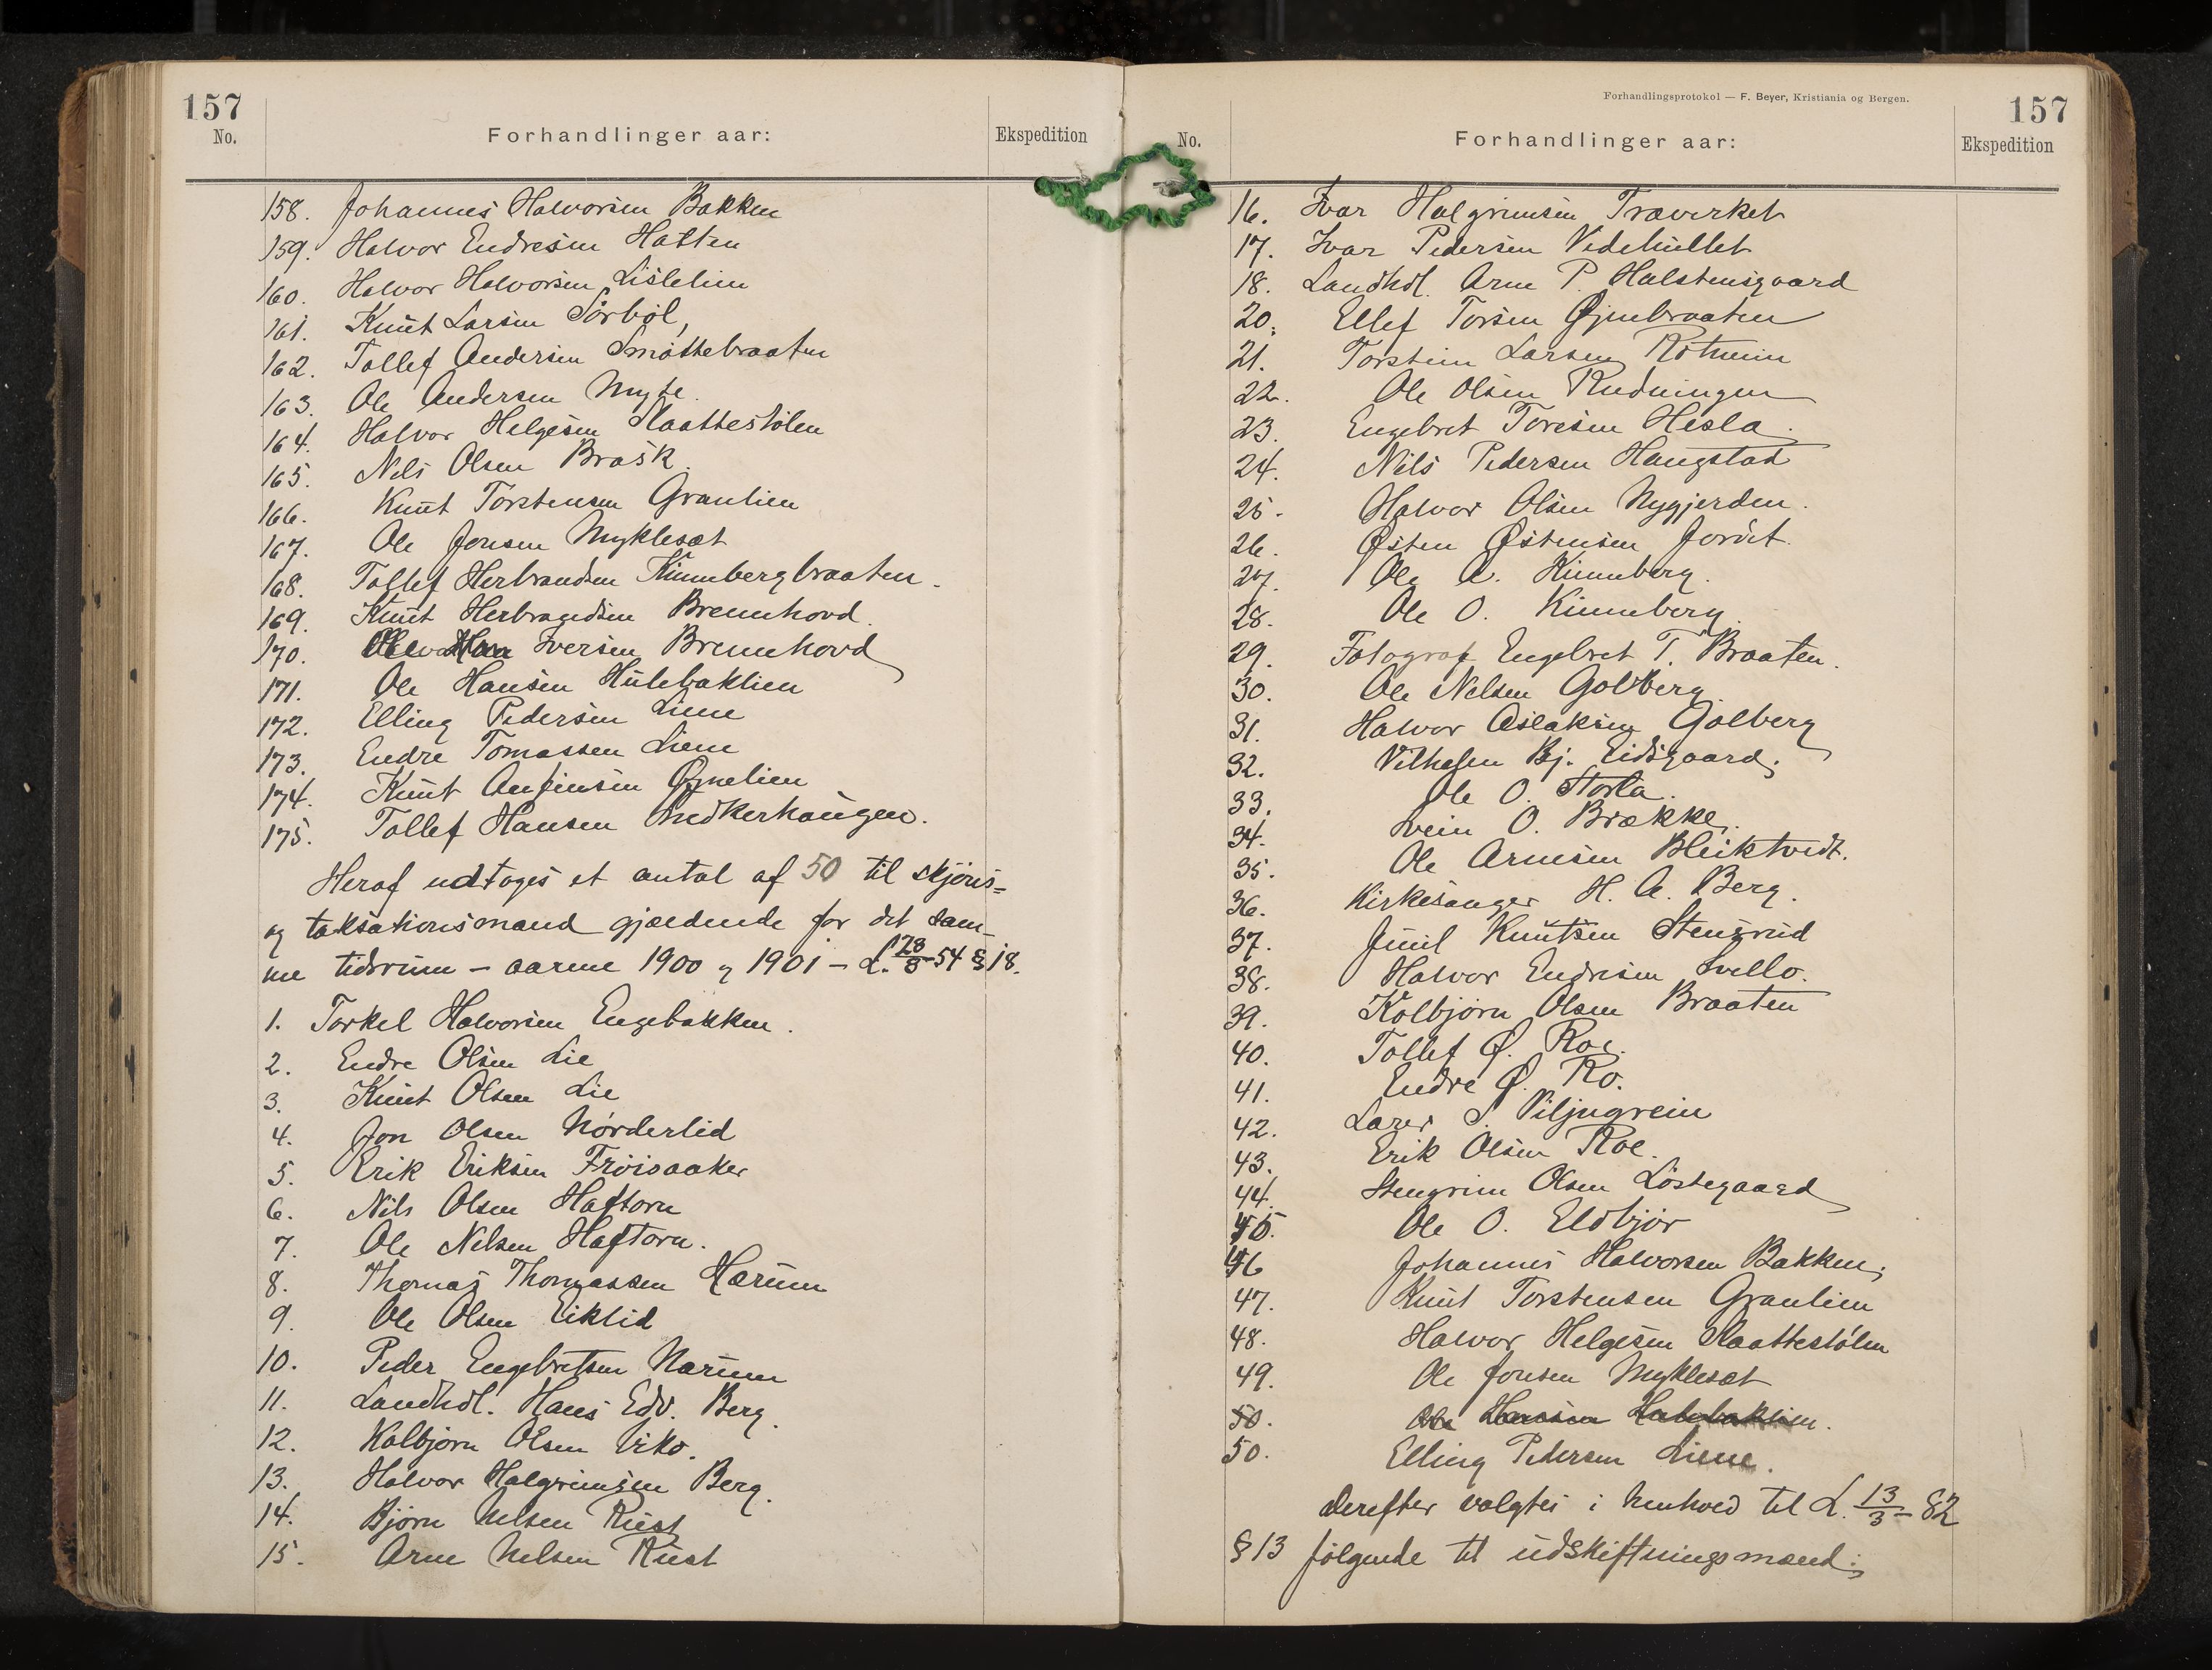 157
No.
Forhandlinger aar:
Ekspedition
158. Johannes Halvorsen Bakken
159. Halvor Endresen Hatten
160. Halvor Halvorsen Lislelien
161. Knut Larsen Sørbøl,
162. Tollef Andersen Smøttebraaten
163. Ole Andersen Myte.
164. Halvor Helgesen Slaattestølen
165. Nils Olsen Brask.
166. Knut Torstensen Granlien
167. Ole Jonsen Myklesæt
168. Tollef Herbrandsen Kinnebergbraaten.
169. Knut Herbrandsen Brennhovd.
170. Iversen Brennhovd
171. Ole Hansen Hulebaklien
172. Elling Pedersen Liene
173. Endre Tomassen Liene
174. Knut Anfinsen Ørnelien
175. Tollef Hansen
Heraf udtages et antal af 50 til skjøns=
og taksationsmænd gjældende for det sam-
me tidsrum – aarene 1900 og 1901 – L. 28/8-54 § 18.
1. Torkel Halvorsen Engebakken.
2. Endre Olsen Lie
3. Knut Olsen Lie
4. Jon Olsen Nørderlid
5. Erik Eriksen Frøisaaker
6. Nils Olsen Haftorn
7. Ole Nilsen Haftorn.
8. Thomas Thomassen Narum
9. Ole Olsen Eiklid
10. Peder Engebretsen Narum
11. Landhdl. Hans Edv. Berg.
12. Kolbjørn Olsen Viko.
13. Halvor Halgrimsen Berg.
14. Bjørn Nilsen Rust
15. Arne Nilsen Rust
Forhandlingsprotokol — F. Beyer, Kristiania og Bergen.
157
No.
Forhandlinger aar:
Ekspedition
16. Ivar Halgrimsen Træverket
17. Ivar Pedersen Videhullet
18. Landhdl. Arne P. Halstensgaard
20. Ellef Torsen Øjnebraaten
21. Torstein Larsen Rotneim
22. Ole Olsen Rudningen
23. Engebret Toresen Hesla.
24. Nils Pedersen Haugstad
25. Halvor Olsen Nygjerden.
26. Østen Østensen Jordet.
27. Ole A. Kinneberg.
28. Ole O. Kinneberg.
29. Fotograf Engebret T. Braaten.
30. Ole Nelsen Golberg.
31. Halvor Aslaksen Golberg
32. Vilhelm Bj. Eidsgaard;
33. Ole O. Storla.
34. Svein O. Brække.
35. Ole Arnesen Bleiktvedt.
36. Kirkesanger H. A. Berg.
37. Juul Knutsen Stensrud
38. Halvor Endresen Svello.
39. Kolbjørn Olsen Braaten
40. Tollef Ø. Roe.
41. Endre Ø. Ro.
42. Larer S. Viljugrein
43. Erik Olsen Roe.
44. Stengrim Olsen Løstegaard
45. Ole O. Eldbjør
46 Johannes Halvorsen Bakken;
47. Knut Torstensen Granlien
48. Halvor Helgesen Slaattestølen
49. Ole Jonsen Myklesæt
50. Ole Hansen Hulebaklien.
50. Elling Pedersen Liene.
derefter valgtes i henhold til L. 13/3-82
§ 13 følgende til udskiftningsmænd;